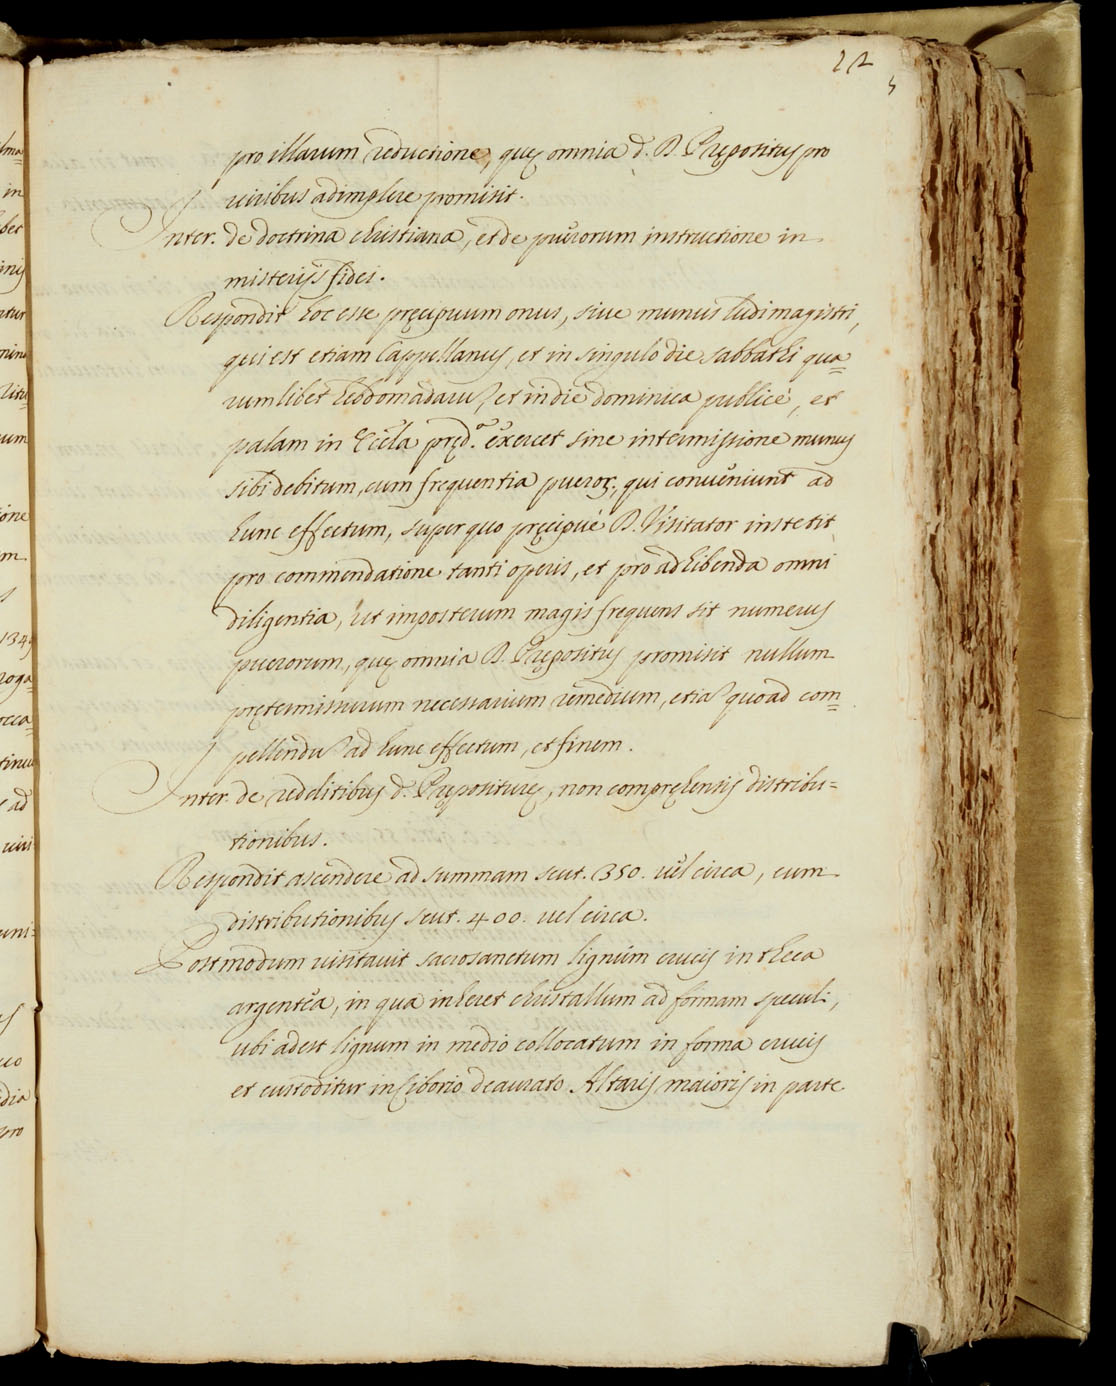 22
5
pro illarum reductione, quę omnia d. D. Prępositus pro
viribus adimplere promisit.
Inter. de doctrina christiana, et de puerorum instructione in
misterijs fidei.
Respondit hoc esse pręcipuum onus, siue munus ludimagistri,
qui est etiam Cappellanus, et in singulo die sabbathi qua=
rumlibet hebdomadarũ, et in die dominica publicè, et
palam in Eccľa pręd.ª exercet sine intermissione munus
sibi debitum, cum frequentia pueroꝝ, qui conueniunt ad
hunc effectum, super quo pręcipuè D. Visitator institit
pro commendatione tanti operis, et pro adhibenda omni
diligentia, ut imposterum magis frequens sit numerus
puerorum, quę omnia D. Prępositus promisit nullum
prętermissurum necessarium remedium, etiã quoad com=
pellendũ ad hunc effectum, et finem.
Inter. de redditibus d. Prępositurę, non compręhensis distribu=
tionibus.
Respondit ascendere ad summam scut. 350. vel circa, cum
distributionibus scut. 400. vel circa.
Postmodum visitauit sacrosanctum lignum crucis in theca
argentea, in qua inheret christallum ad formam speculi,
ubi adest lignum in medio collocatum in forma crucis
et custoditur in Ciborio deaurato Altaris maioris in parte